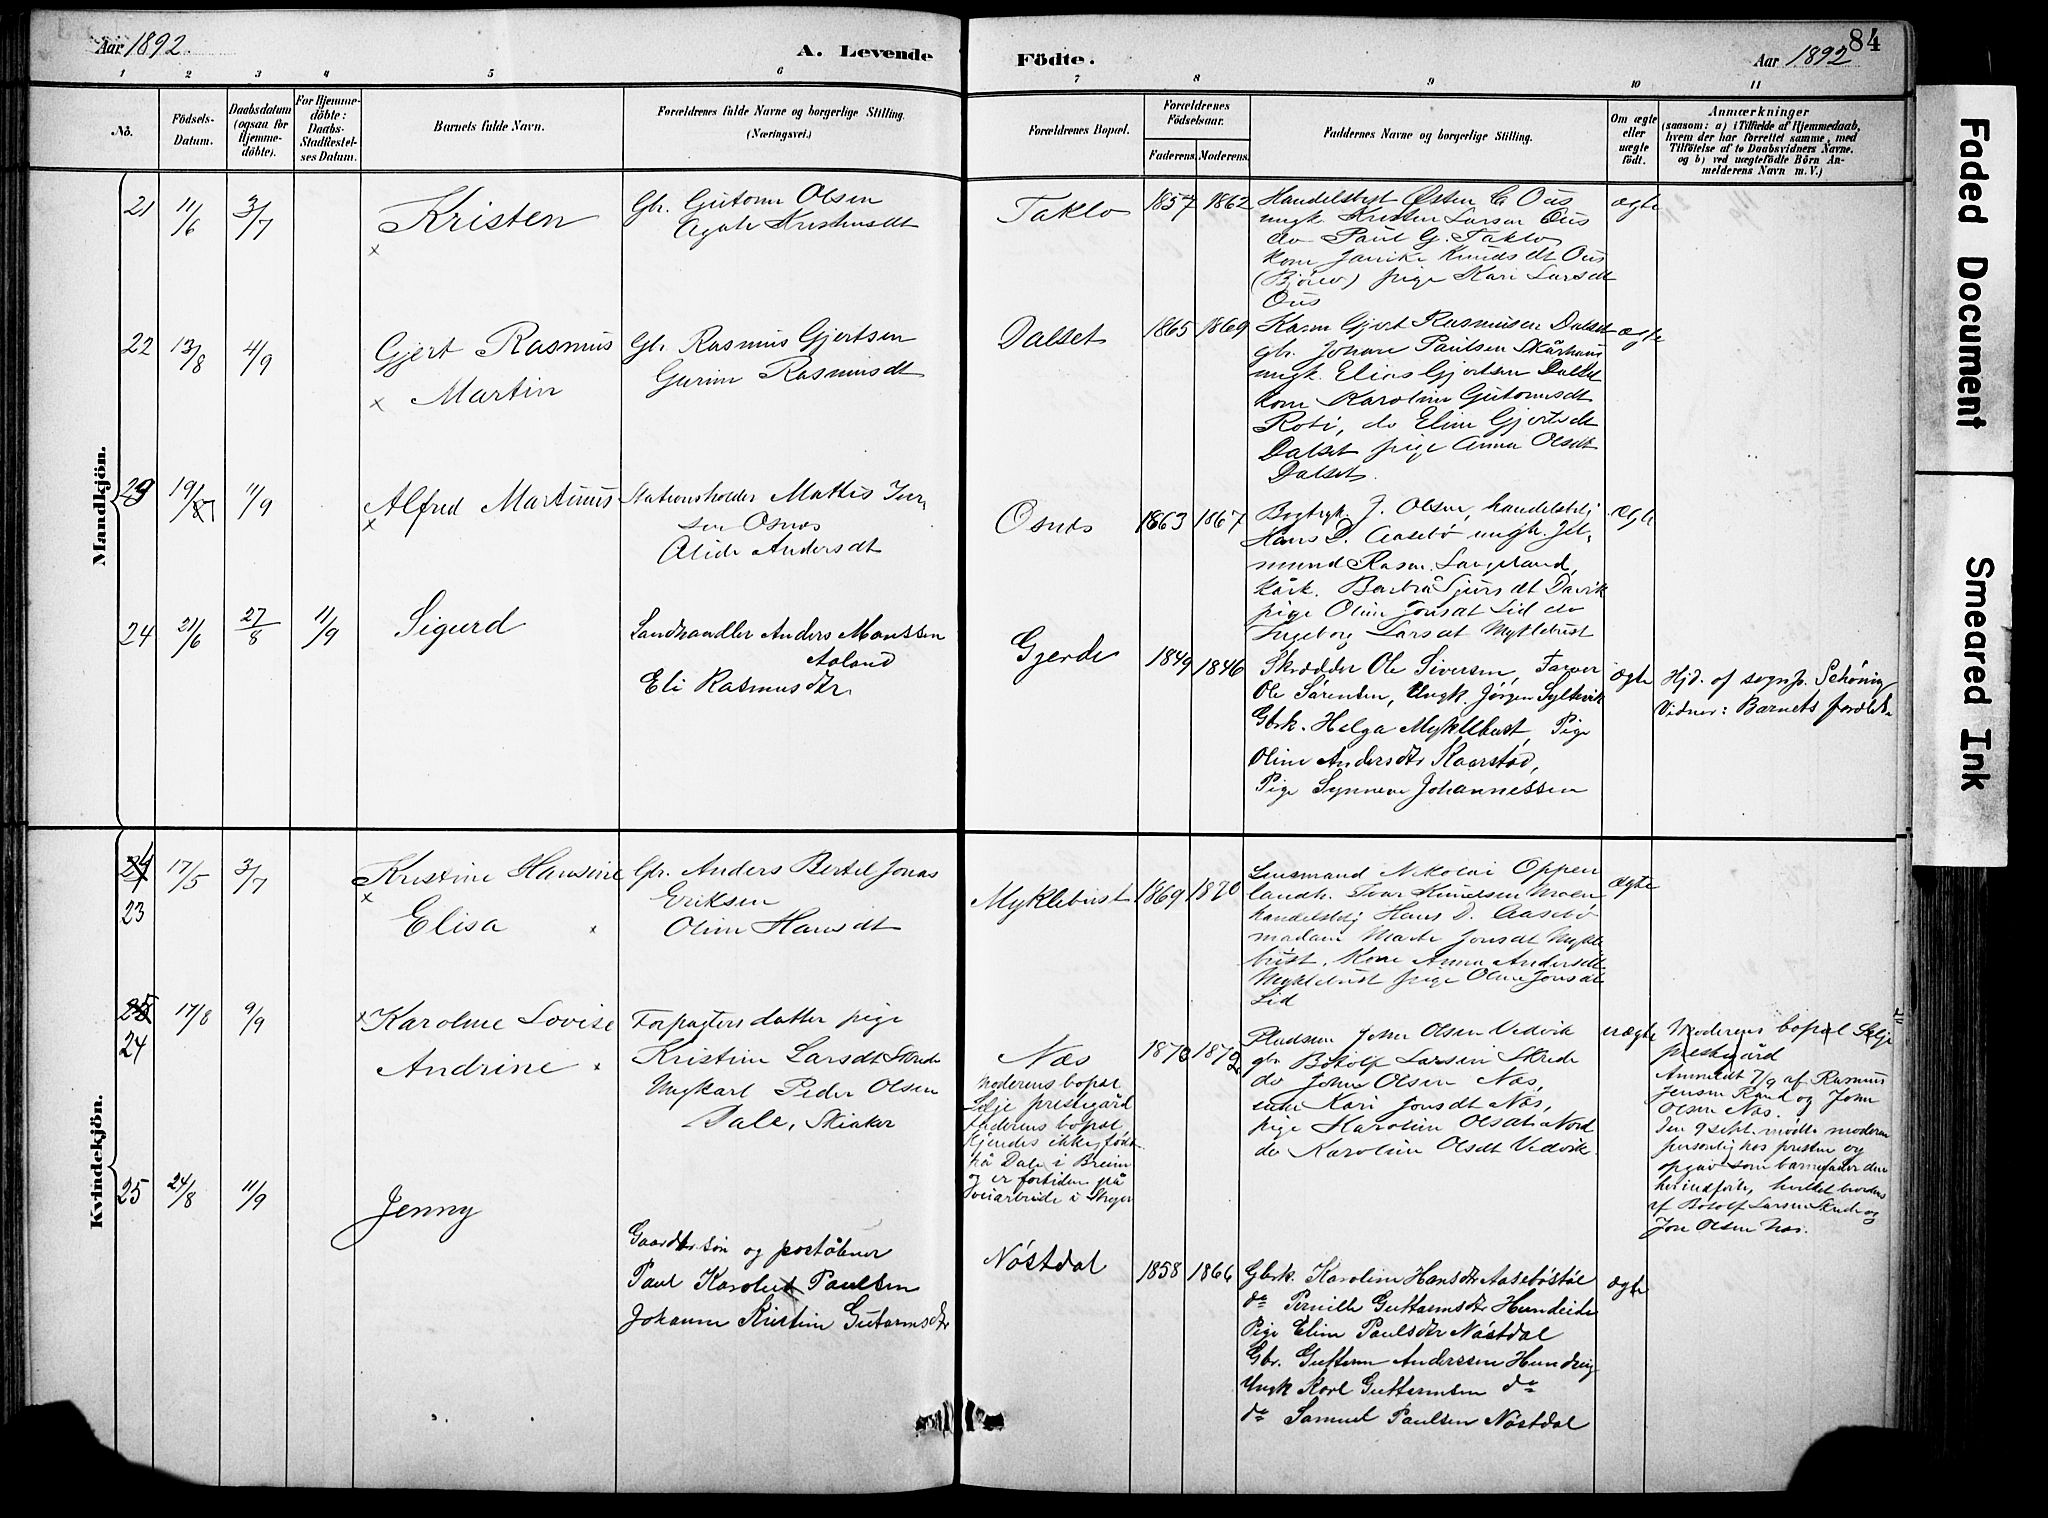 Aar 1892.
A. Levende Födte.
Aar 1892
84
1 2 3 4 5 6 7 8 9 10 11
No.
Födsels-
Datum.
Daabsdatum
(ogsaa for
Hjemme-
döbte).
For Hjemme-
döbte:
Daabs-
Stadfestel-
ses Datum.
Barnets fulde Navn.
Forældrenes fulde Navne og borgerlige Stilling.
(Næringsvei.)
Forældrenes Bopæl.
Forældrenes
Födselsaar.
Faderens. Moderens.
Faddernes Navne og borgerlige Stilling.
Om ægte
eller
uægte
födt.
Anmærkninger
(saasom: a) i Tilfælde af Hjemmedaab,
hvem der har forrettet samme, med
Tilföielse af to Daabsvidners Navne.
og b) ved uægtefödte Börn An-
melderens Navn m. V.)
Mandkjön.
21 11/6 3/7
Kristen
Gbr. Gutorm Olsen
Taklo
1857 1862
Handelsbest Østen C Ous
ungk. Kristen Larsen Ous
do Paul G. Taklo
kone Janike Knudsdt Ous
(Bjørlo) pige Kari Larsdt
Ous
ægte
22 13/8 4/9
Gjert Rasmus
Martin
Gbr. Rasmus Gjertsen
Gurine Rasmusdt
Dalset
1865 1869
Karm Gjert Rasmusen Dalset
gbr. Johan Paulsen Skårhaus
ungk. Elias Gjertsen Dalset
kone Karoline Gutormsdt
Roti, do Eline Gjertsdt
Dalset pige Anna Olsdt
Dalset.
ægte
23 19/8 11/9
Alfred Martinus
Stationsholder Mattis Iver-
sen Osnes
Alide Andersdt
Osnes
1863 1867
Bogtryk. J. Olsen, handelsbetj
Hans D. Aasebø ungk. Jet-
mund Rasm. Langeland,
Barbra Sjursdt Davik
pige Oline Jonsdt Lid do
Ingeborg Larsdt Myklebust
ægte
24 21/6 27/8 11/9
Sigurd
Landhandler Anders Monssen
Aaland
Eli Rasmusdtr.
Gjerde
1849 1846
Skrædder Ole Siversen, Farver
Ole Sørensen, Ungk. Jørgen Sylkevik
Gbrk. Helga Myklebust, Pige
Oline Andersdtr Kaarstad,
Pige Synneve Johannessen
ægte
Hjd. af sognp. Schöning
Vidner: Barnets forældre
Kvindekjön.
24
23
17/5 3/7
Kristine Hansine
Elisa
Gbr. Anders Bertel Jonas
Eriksen
Oline Hansdt
Myklebust
1869 1870
Lensmand Nikolai Oppen
landh. Ivar Knudsen Moen
handelsbetj Hans D. Aasebø
madam Marte Jonsdt Mykle-
bust. Kone Anna Andersdt
Myklebust pige Oline Jonsdt
Lid
ægte
25
24
17/8 9/9
Karoline Lovise
Andrine
Forpagters datter pige
Kristine Larsdt Skrede
Ungkarl Peder Olsen
Dale, Skiaker
Næs
moderens bopæl
Selje prestegård
faderens bopæl
kjendes ikke, født
på Dale i Breim
og er fortiden på
veiarbeide i Stryn
1870 1872
Pladsm John Olsen Vedvik
gbr. Botolf Larsen Skrede
do John Olsen Næs,
enke Kari Jonsdt Næs,
pige Karoline Olsdt Nord
do Karoline Olsdt Vedvik.
uægte
Moderens bopæl Selje
prestegård
Anmeldt 7/9 af Rasmus
Jensen Rand og John
Olsen Næs.
Den 9 sept. mødte moderen
personlig hos presten og
opgav som barnefader den
her indførte, hvilket bevidnes
af Botolf Larsen Skrede og
Jon Olsen Næs.
25 24/8 11/9
Jenny
Gaardbr.søn og poståbner
Paul Karolus Paulsen
Johanne Kristine Gutormsdtr
Nöstdal
1858 1866
Gbrk. Karoline Hansdtr Aasebøstøl
do Pernille Guttormsdtr Hundeide
Pige Eline Paulsdtr Nöstdal
Gbr. Guttorm Anderssen Hundeig
Ungk Karl Guttormsen do
do Samuel Paulsen Nöstdal
ægte
Faded Document
Smeared Ink